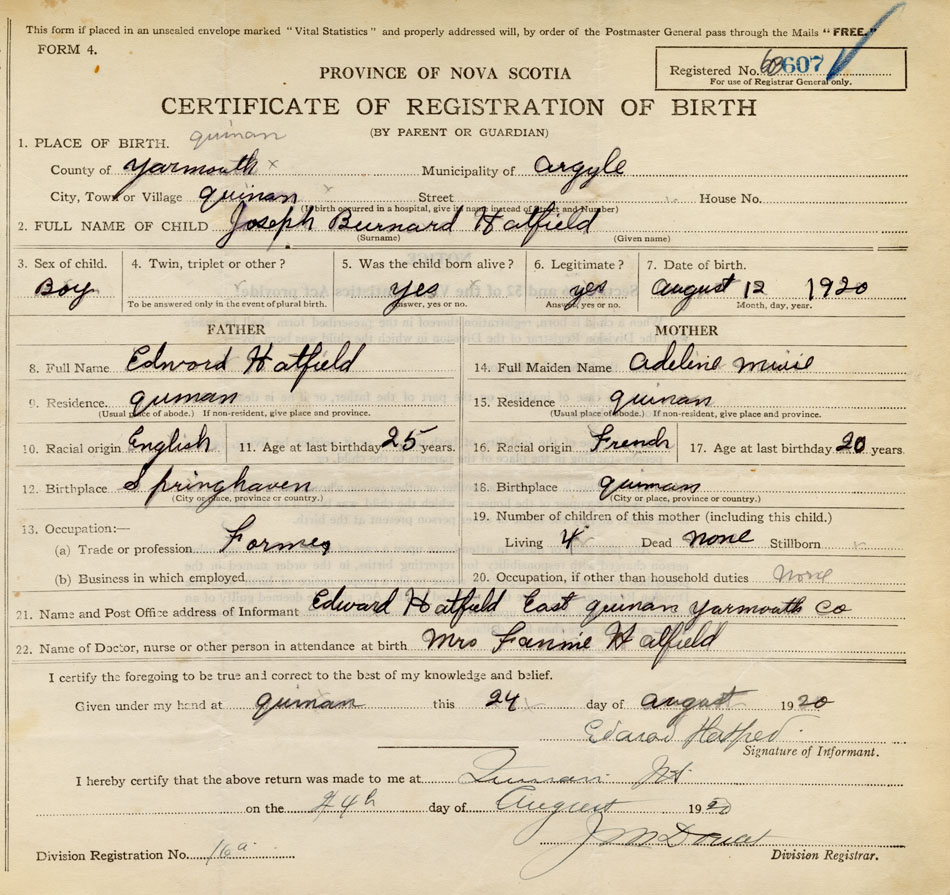 This form if placed in an unsealed envelope marked "Vital Statistics" and properly addressed will, by order of the Postmaster General pass through the Mails "FREE."
FORM 4.
Registered No. 607
For use of Registrar General only.
PROVINCE OF NOVA SCOTIA
CERTIFICATE OF REGISTRATION OF BIRTH
(BY PARENT OR GUARDIAN)
quinan
1. PLACE OF BIRTH.
County of Yarmouth x Municipality of Argyle
City, Town or Village quinan Street House No.
(If birth occurred in a hospital, give its name instead of Street and Number)
2. FULL NAME OF CHILD Joseph Burnard Hatfield
(Surname) (Given name)
3. Sex of child. 4. Twin, triplet or other? 5. Was the child born alive? 6. Legitimate? 7. Date of birth.
Boy yes yes August 12 1920
To be answered only in the event of plural birth. Answer, yes or no. Answer, yes or no. Month, day, year.
FATHER MOTHER
8. Full Name Edword Hatfield 14. Full Maiden Name Adeline
9. Residence. quinan 15. Residence quinan
(Usual place of abode.) If non-resident, give place and province. (Usual place of abode.) If non-resident, give place and province.
10. Racial origin English 11. Age at last birthday 25 years. 16. Racial origin French 17. Age at last birthday 20 years.
12. Birthplace Springhaven 18. Birthplace quinan
(City or place, province or country.) (City or place, province or country.)
13. Occupation:— 19. Number of children of this mother (including this child.)
(a) Trade or profession. Farmer Living 4 Dead none Stillborn
(b) Business in which employed 20. Occupation, if other than household duties None
21. Name and Post Office address of Informant Edward Hatfield East quinan Yarmouth Co
22. Name of Doctor, nurse or other person in attendance at birth Mrs Fannie Hatfield
I certify the foregoing to be true and correct to the best of my knowledge and belief.
Given under my hand at quinan this 24 day of august 1920
Edward Hatfield
Signature of Informant.
I hereby certify that the above return was made to me at Quinan N.S.
on the 24th day of August 1920
Division Registration No. 16a Division Registrar.